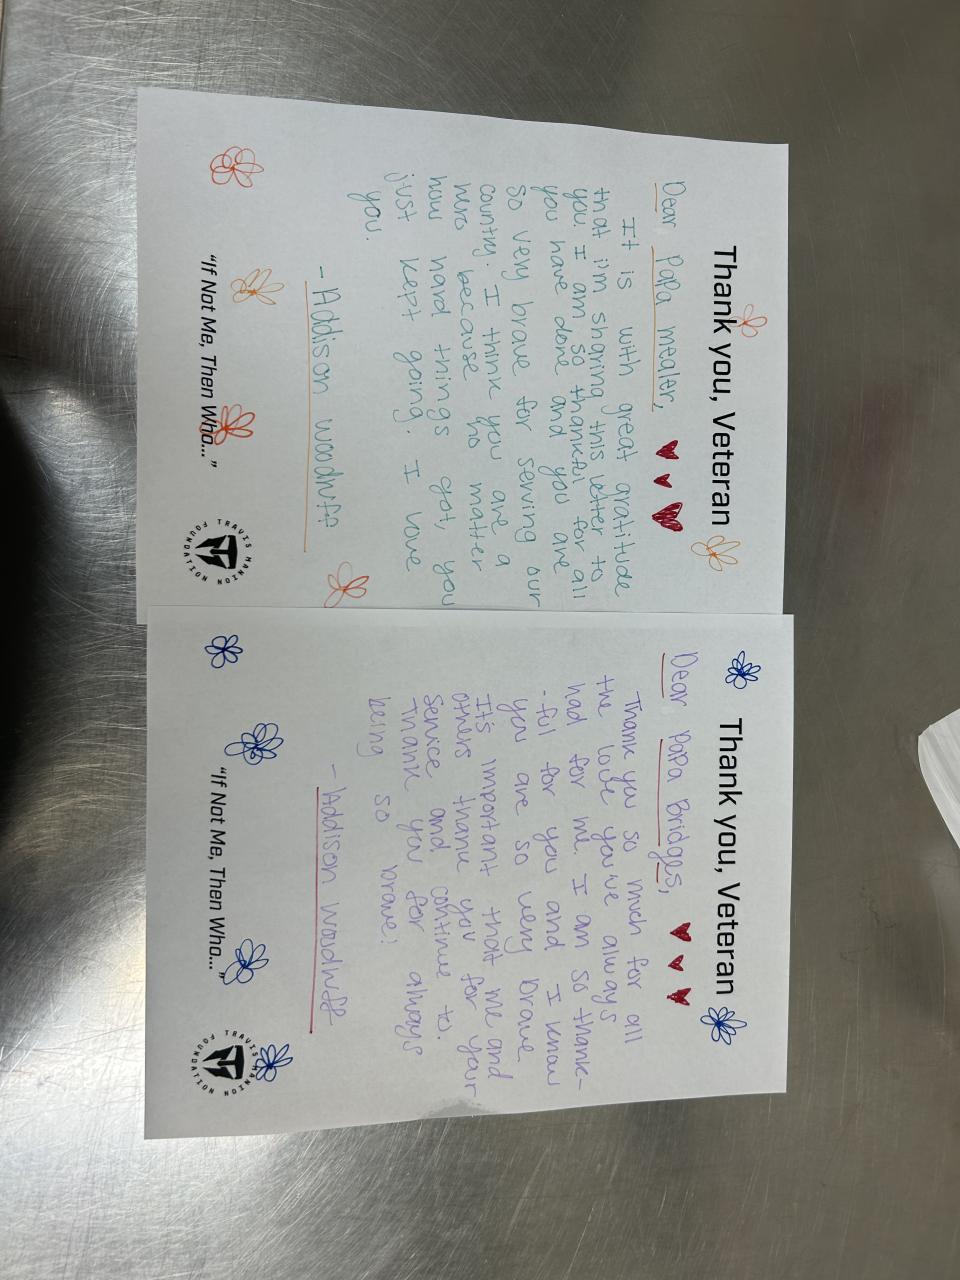 Thank you, Veteran
Dear Papa mealer,
It is with great gratitude
that i'm sharing this letter to
you. I am so thankful for all
you have done and you are
so very brave for serving our
country. I think you are a
hero because no matter
how hard things got, you
just kept going. I love
you.
- Addison woodruff
"If Not Me, Then Who..."
TRAVIS MANION FOUNDATION
Thank you, Veteran
Dear Papa Bridges,
Thank you so much for all
the love you've always
had for me. I am so thank-
-ful for you and I know
you are so very brave.
It's important that me and
others thank you for your
service and continue to.
Thank you for always
being so brave!
- Addison woodruff
"If Not Me, Then Who..."
TRAVIS MANION FOUNDATION